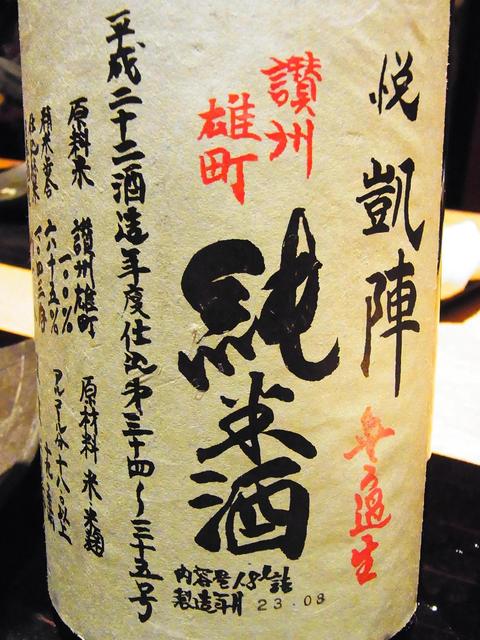 悦凱陣
無ろ過生
讃州
雄町
純米酒
内容量1.8L詰
製造年月 23.08
平成二十二酒造年度仕込第三十四～三十五号
原料米 讃州雄町
一〇〇%
精米歩合 六十五%
原材料 米 米麹
アルコール分 十八